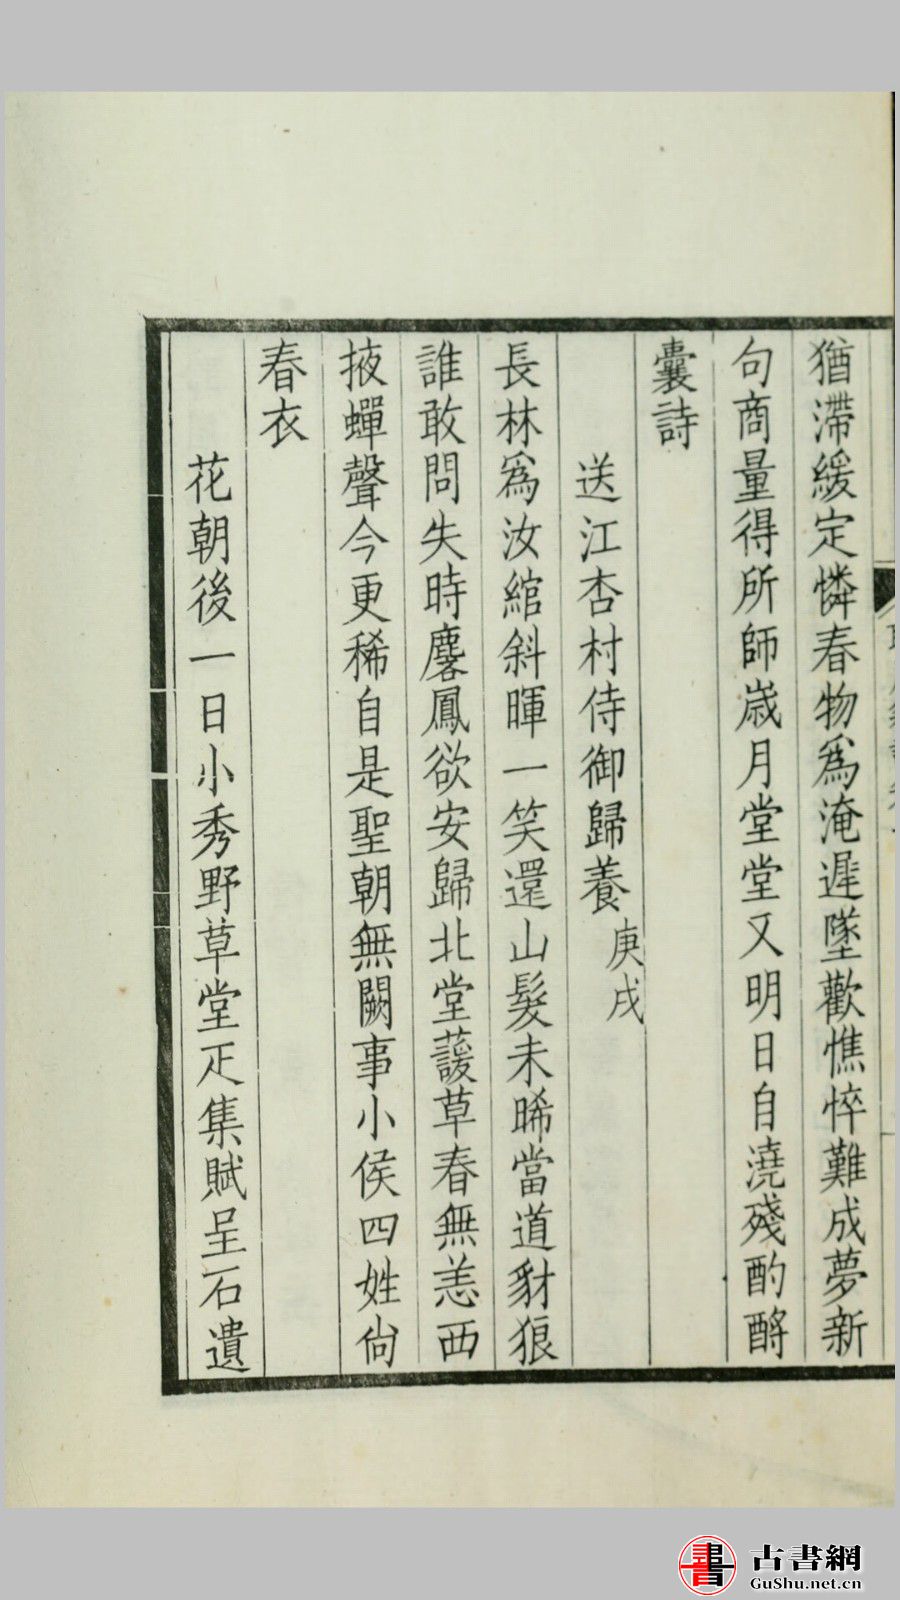 猶滯緩定憐春物爲淹遲墜歡憔悴難成夢新
句商量得所師歲月堂堂又明日自澆殘酌酹
囊詩
送江杏村侍御歸養庚戌
長林爲汝綰斜暉一笑還山髮未晞當道豺狼
誰敢問失時麐鳳欲安歸北堂蘐草春無恙西
掖蟬聲今更稀自是聖朝無闕事小侯四姓尙
春衣
花朝後一日小秀野草堂疋集賦呈石遺
古書網
GuShu.net.cn